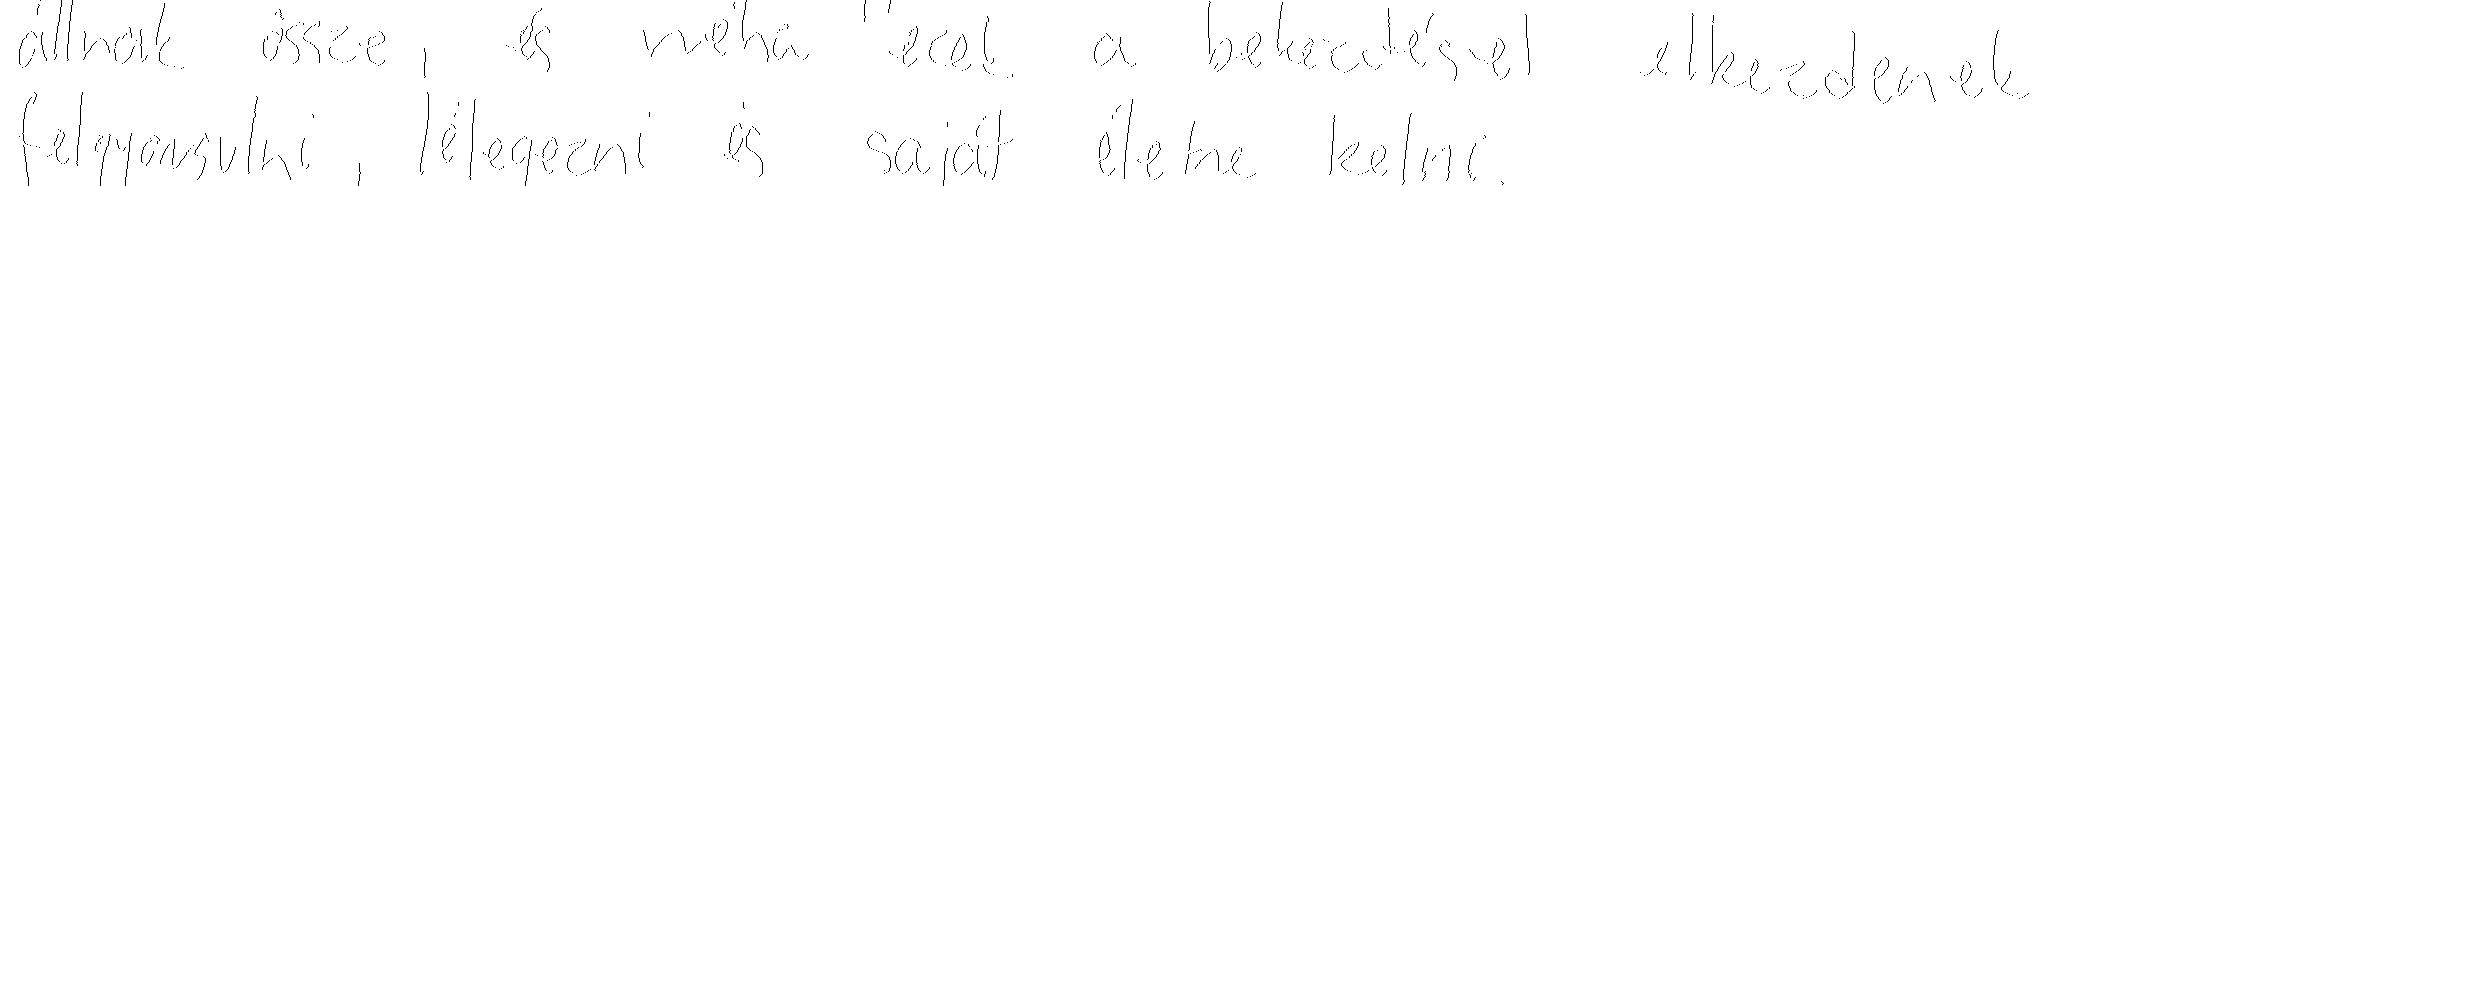 állnak össze, és néha ezek a bekezdések elkezdenek
felgyorsulni, lélegezni és saját életre kelni.